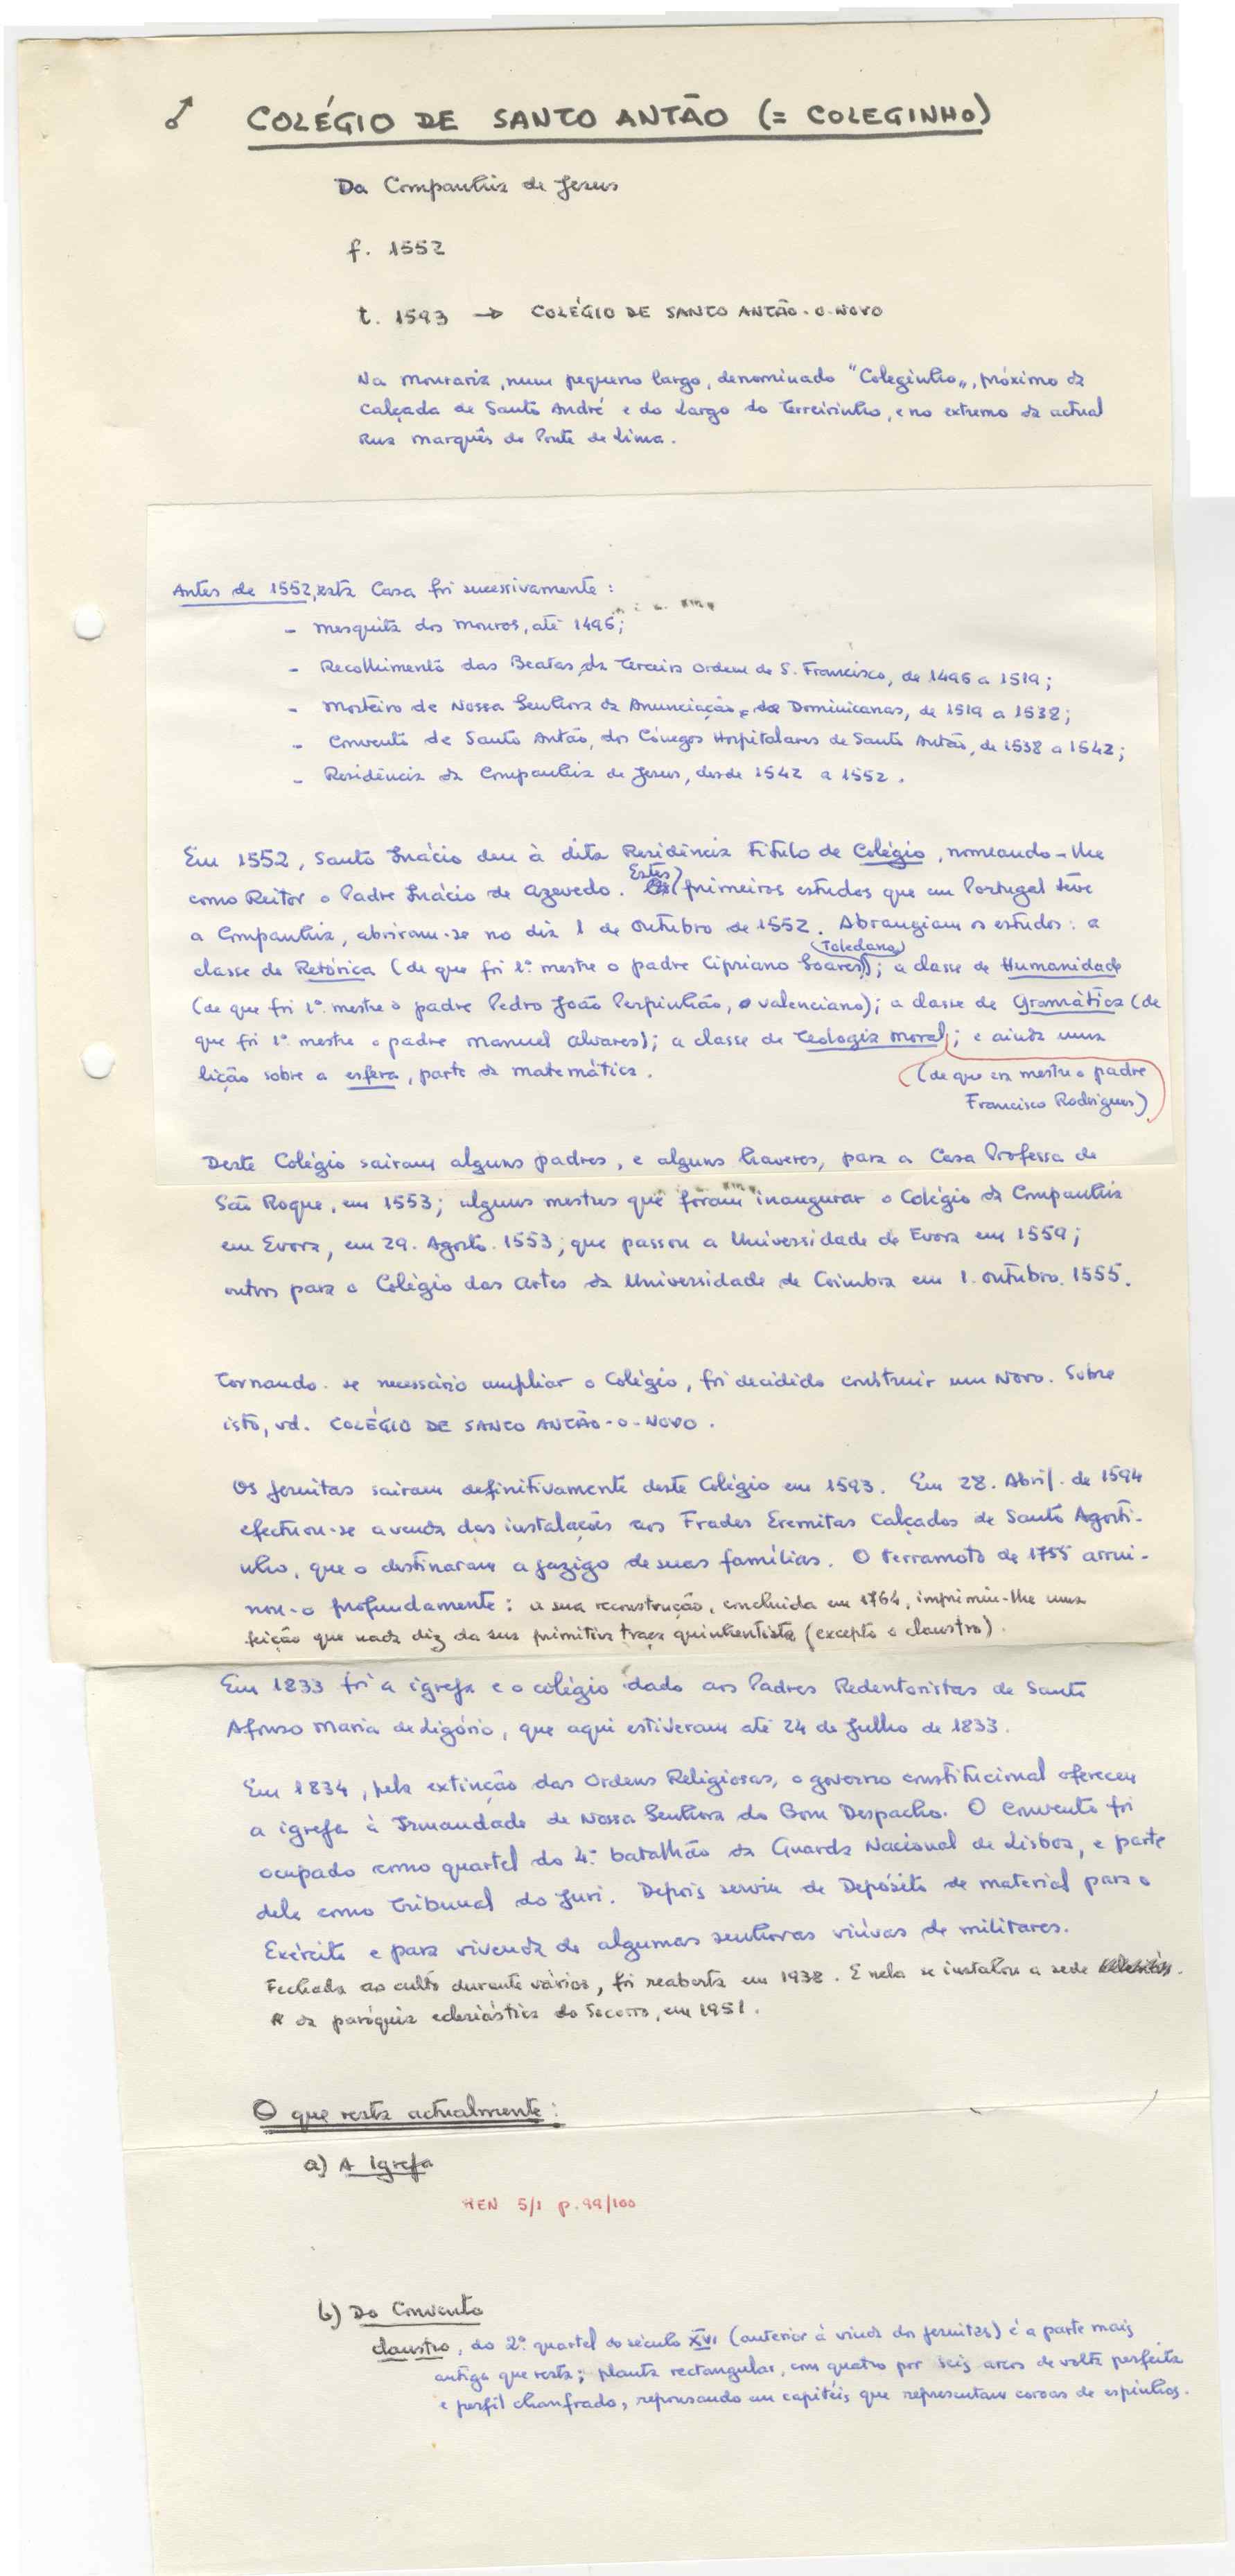 ♂ COLÉGIO DE SANTO ANTÃO (= COLEGINHO)
Da Companhia de Jesus
f. 1552
t. 1593 → COLÉGIO DE SANTO ANTÃO-O-NOVO
Na Mouraria, num pequeno largo, denominado "Coleginho„, próximo da
Calçada de Santo André e do Largo do Terreirinho, e no extremo da actual
Rua Marquês de Ponte de Lima.
Antes de 1552, esta Casa foi sucessivamente:
- Mesquita dos Mouros, até 1496;
- Recolhimento das Beatas, da Terceira Ordem de S. Francisco, de 1496 a 1519;
- Mosteiro de Nossa Senhora da Anunciação, de Dominicanas, de 1519 a 1538;
- Convento de Santo Antão, dos Cónegos Hospitalares de Santo Antão, de 1538 a 1542;
- Residência da Companhia de Jesus, desde 1542 a 1552.
Em 1552, Santo Inácio deu à dita Residência título de Colégio, nomeando-lhe
como Reitor o Padre Inácio de Azevedo. Estes primeiros estudos que em Portugal teve
a Companhia, abriram-se no dia 1 de Outubro de 1552. Abrangiam os estudos: a
classe de Retórica (de que foi 1º mestre o padre Cipriano Soares (Toledano)); a classe de Humanidade
(de que foi 1º mestre o padre Pedro João Perpinhão, valenciano); a classe de Gramática (de
que foi 1º mestre o padre Manuel Alvares); a classe de Teologia Moral; e ainda uma
lição sobre a esfera, parte da matemática.
(de que era mestre o padre
Francisco Rodrigues)
Deste Colégio sairam alguns padres, e alguns haveres, para a Casa Professa de
São Roque, em 1553; alguns mestres que foram inaugurar o Colégio da Companhia
em Evora, em 29. Agosto. 1553; que passou a Universidade de Evora em 1559;
outros para o Colégio das Artes da Universidade de Coimbra em 1. Outubro. 1555.
Tornando-se necessário ampliar o Colégio, foi decidido construir um Novo. Sobre
isto, vd. COLÉGIO DE SANTO ANTÃO-O-NOVO.
Os Jesuitas sairam definitivamente deste Colégio em 1593. Em 28. Abril. de 1594
efectuou-se a venda das instalações aos Frades Eremitas Calçados de Santo Agosti-
nho, que o destinaram a jazigo de suas famílias. O terramoto de 1755 arrui-
nou-o profundamente: a sua reconstrução, concluida em 1764, imprimiu-lhe uma
feição que nada diz da sua primitiva traça quinhentista (excepto o claustro).
Em 1833 foi a igreja e o colégio dado aos Padres Redentoristas de Santo
Afonso Maria de Ligório, que aqui estiveram até 24 de Julho de 1833.
Em 1834, pela extinção das Ordens Religiosas, o governo constitucional ofereceu
a igreja à Irmandade de Nossa Senhora do Bom Despacho. O Convento foi
ocupado como quartel do 4º batalhão da Guarda Nacional de Lisboa, e parte
dele como Tribunal do Juri. Depois serviu de Depósito de material para o
Exército e para vivenda de algumas senhoras viúvas de militares.
Fechada ao culto durante vários, foi reaberta em 1938. E nela se instalou a sede
da paróquia eclesiástica do Socorro, em 1951.
O que resta actualmente:
a) A Igreja
HEN 5/1 p. 99/100
b) Do Convento
Claustro, do 2º quartel do século XVI (anterior à vinda dos Jesuitas) é a parte mais
antiga que resta; planta rectangular, com quatro por seis arcos de volta perfeita
e perfil chanfrado, repousando em capitéis que representam coroas de espinhos.